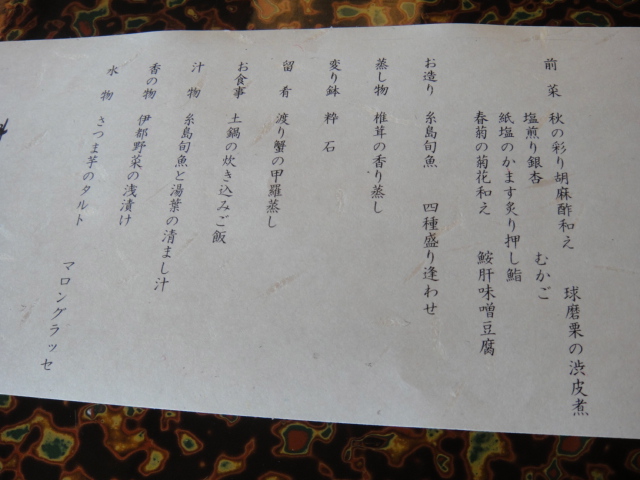 前菜 秋の彩り胡麻酢和え 球磨栗の渋皮煮
塩煎り銀杏 むかご
紙塩のかます炙り押し鮨
春菊の菊花和え 鮟肝味噌豆腐
お造り 糸島旬魚 四種盛り逢わせ
蒸し物 椎茸の香り蒸し
変り鉢 粋石
留肴 渡り蟹の甲羅蒸し
お食事 土鍋の炊き込みご飯
汁物 糸島旬魚と湯葉の清まし汁
香の物 伊都野菜の浅漬け
水物 さつま芋のタルト マロングラッセ